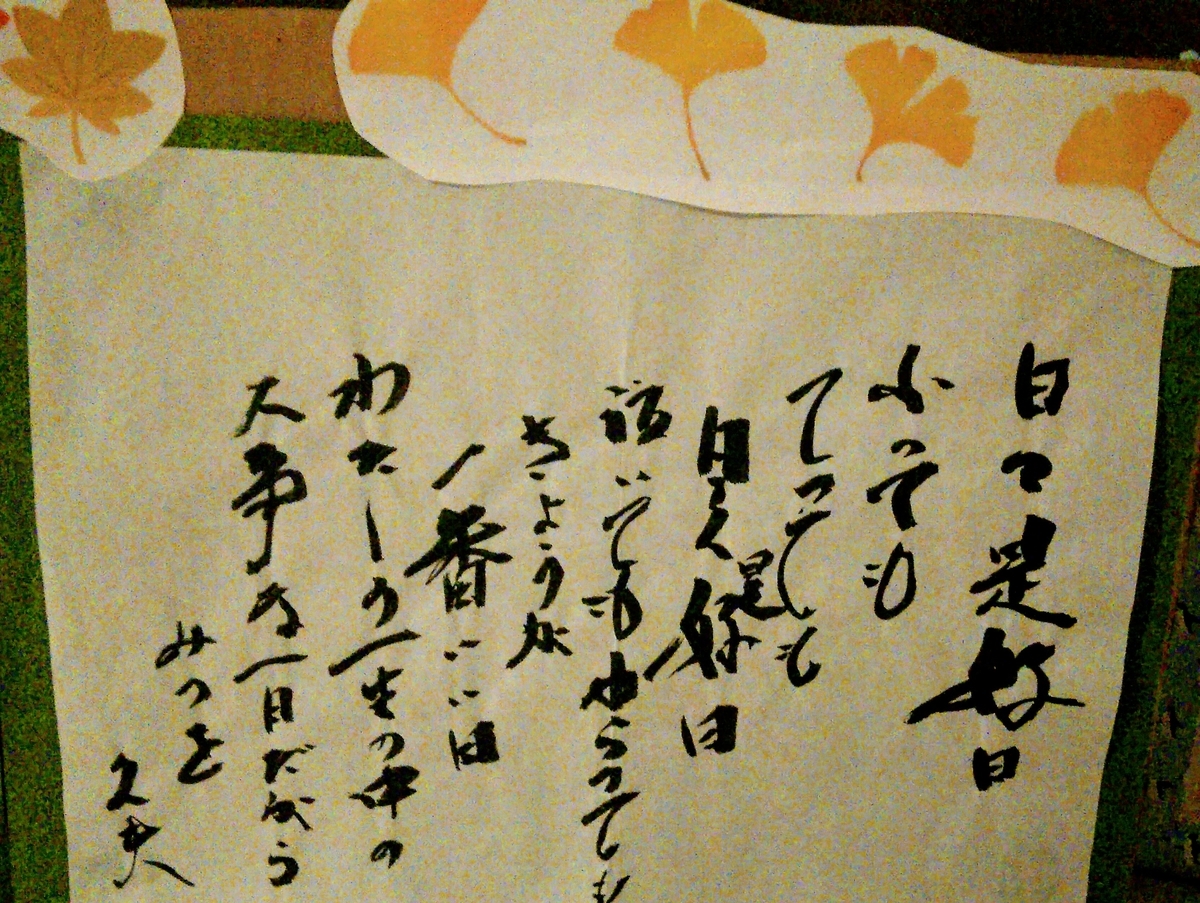 日々是好日
ふっても
てっても
日々是好日
泣いてもわらっても
きょうが
一番いい日
わたしの一生の中の
大事な一日だから
みつを
久夫